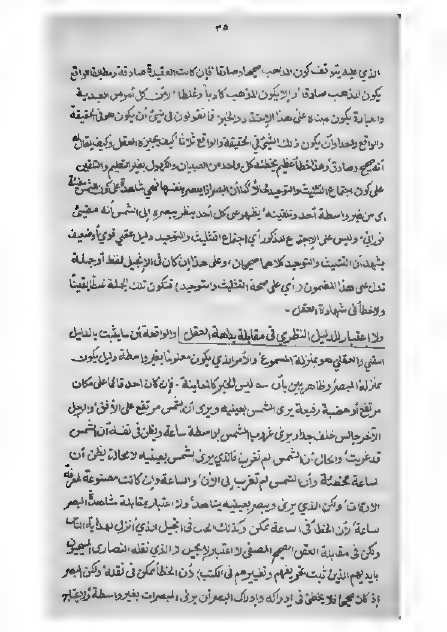 ٣٥
الذي عليه يتوقف كون المذهب صحيحا وصادقا فإن كانت العقيدة صادقة ومطابق الواقع
يكون المذهب صادقا وإلا يكون المذهب كاذبا وغلطا لأن كل أمر من العبدية
والعبادة يكون مبناه على هذا الاعتقاد والخبر فما تقولون في شيئ أن يكون هو في الحقيقة
والواقع واحدا وأن يكون ذلك الشيئ في الحقيقة والواقع ثلاثا كيف يجيزه العقل وكيف يقال له
أنه صحيح وصادق وهذا خطأ عظيم يخطئه كل واحد من الصبيان والكهول بغير التعليم والتلقين
على كون اجتماع التثليث والتوحيد لأن
من غير واسطة أحد وتلقينه يظهر على كل أحد بنظر بصره إلى الشمس أنه مضيئ
نوراني وليس على الاجتماع المذكور أي اجتماع التثليث والتوحيد دليل عقلي قوي أو ضعيف
يشهد أن التثليث والتوحيد كلاهما صحيحان وعلى هذا إن كان في الإنجيل لفظ أو جملة
تدل على هذا المضمون (أي على صحة التثليث والتوحيد) فتكون تلك الجملة غلطا يقينا
ولاخطأ في شهادة العقل -
ولا اعتبار للدليل النظري في مقابلة بداهة العقل والواقعة أن ما يثبت بالدليل
النقلي والعقلي هو بمنزلة المسموع والأمر الذي يكون معلوما بغير واسطة دليل يكون
بمنزلة المبصر وظاهر بين بأن ليس الخبر كالمعاينة - فإن كان أحد قائما على مكان
مرتفع أو هضبة رفيعة يرى الشمس بعينيه ويرى أن الشمس مرتفع على الأفق والرجل
الآخر جالس خلف جدار يرى غروب الشمس بواسطة ساعة ويظن في نفسه أن الشمس
قد غربت والحال أن الشمس لم تغرب فالذي يرى الشمس بعينيه لا محالة يظن أن
ساعة مخطئة وأن الشمس لم تغرب إلى الآن والساعة وإن كانت مصنوعة لمعرفة
الأوقات ولكن الذي يرى ويبصر بعينيه يشاهد ولا اعتبار بمقابلة مشاهدة البصر
ساعة لأن الخطأ في الساعة ممكن وكذلك الحال في انجيل الذي أنزل لهداية الناس
ولكن في مقابلة العقل الصحيح المصفى لا اعتبار لإنجيل الذي نقله النصارى
بأيديهم الذين ثبت تحريفهم وتغييرهم في الكتب لأن الخطأ ممكن في نقله ولكن البصر
إذ كان صحيحا فلا يخطئ في إدراكه وإدراك البصر أن يرى المبصرات بغير واسطة